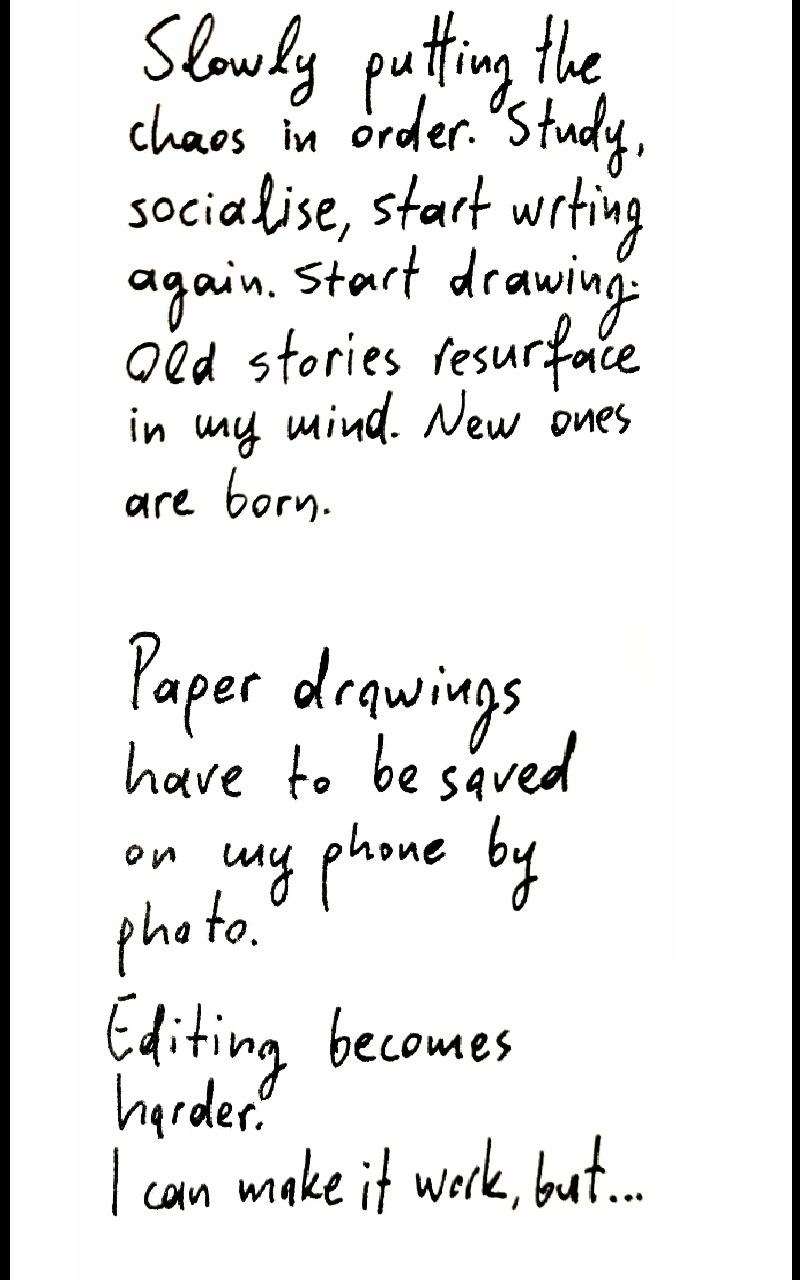 Slowly putting the
chaos in order. Study,
socialise, start wrting
again. Start drawing.
Old stories resurface
in my mind. New ones
are born.
Paper drawings
have to be saved
on my phone by
photo.
Editing becomes
harder.
I can make it work, but...